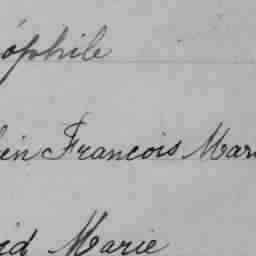 óphile
ien François Mari
id Marie